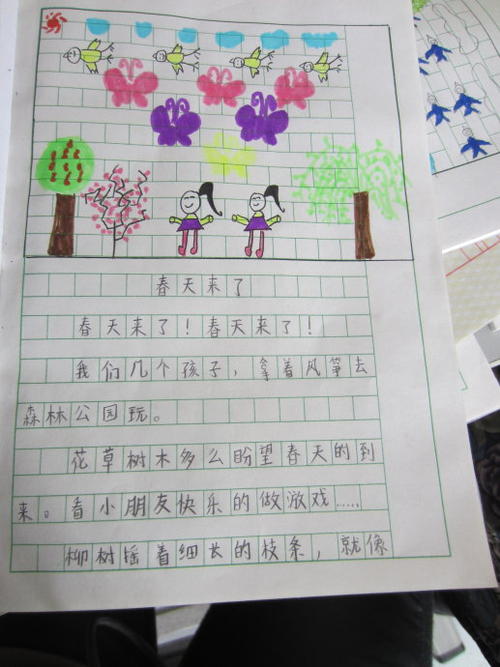 春天来了
春天来了！春天来了！
我们几个孩子，拿着风筝去
森林公园玩。
花草树木多么盼望春天的到
来。看小朋友快乐的做游戏……
柳树摇着细长的枝条，就像